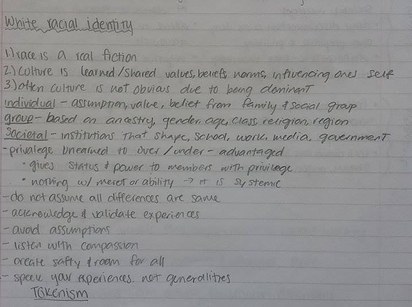 White racial identity
1) race is a real fiction
2.) culture is learned/shared values, beliefs, norms, influencing ones self
3) often culture is not obvious due to being dominant
individual - assumption, value, belief from family & social group
group - based on ancestry, gender, age, class, religion, region
Societal - institutions that shape, school, work, media, government
- privalege unearned to over/under-advantaged
• gives status & power to members with privilege
• nothing w/ merit or ability → it is systemic
- do not assume all differences are same
- acknowledge & validate experiences
- avoid assumptions
- listen with compassion
- create safty & room for all
- speak your experiences. not generalities
Tokenism